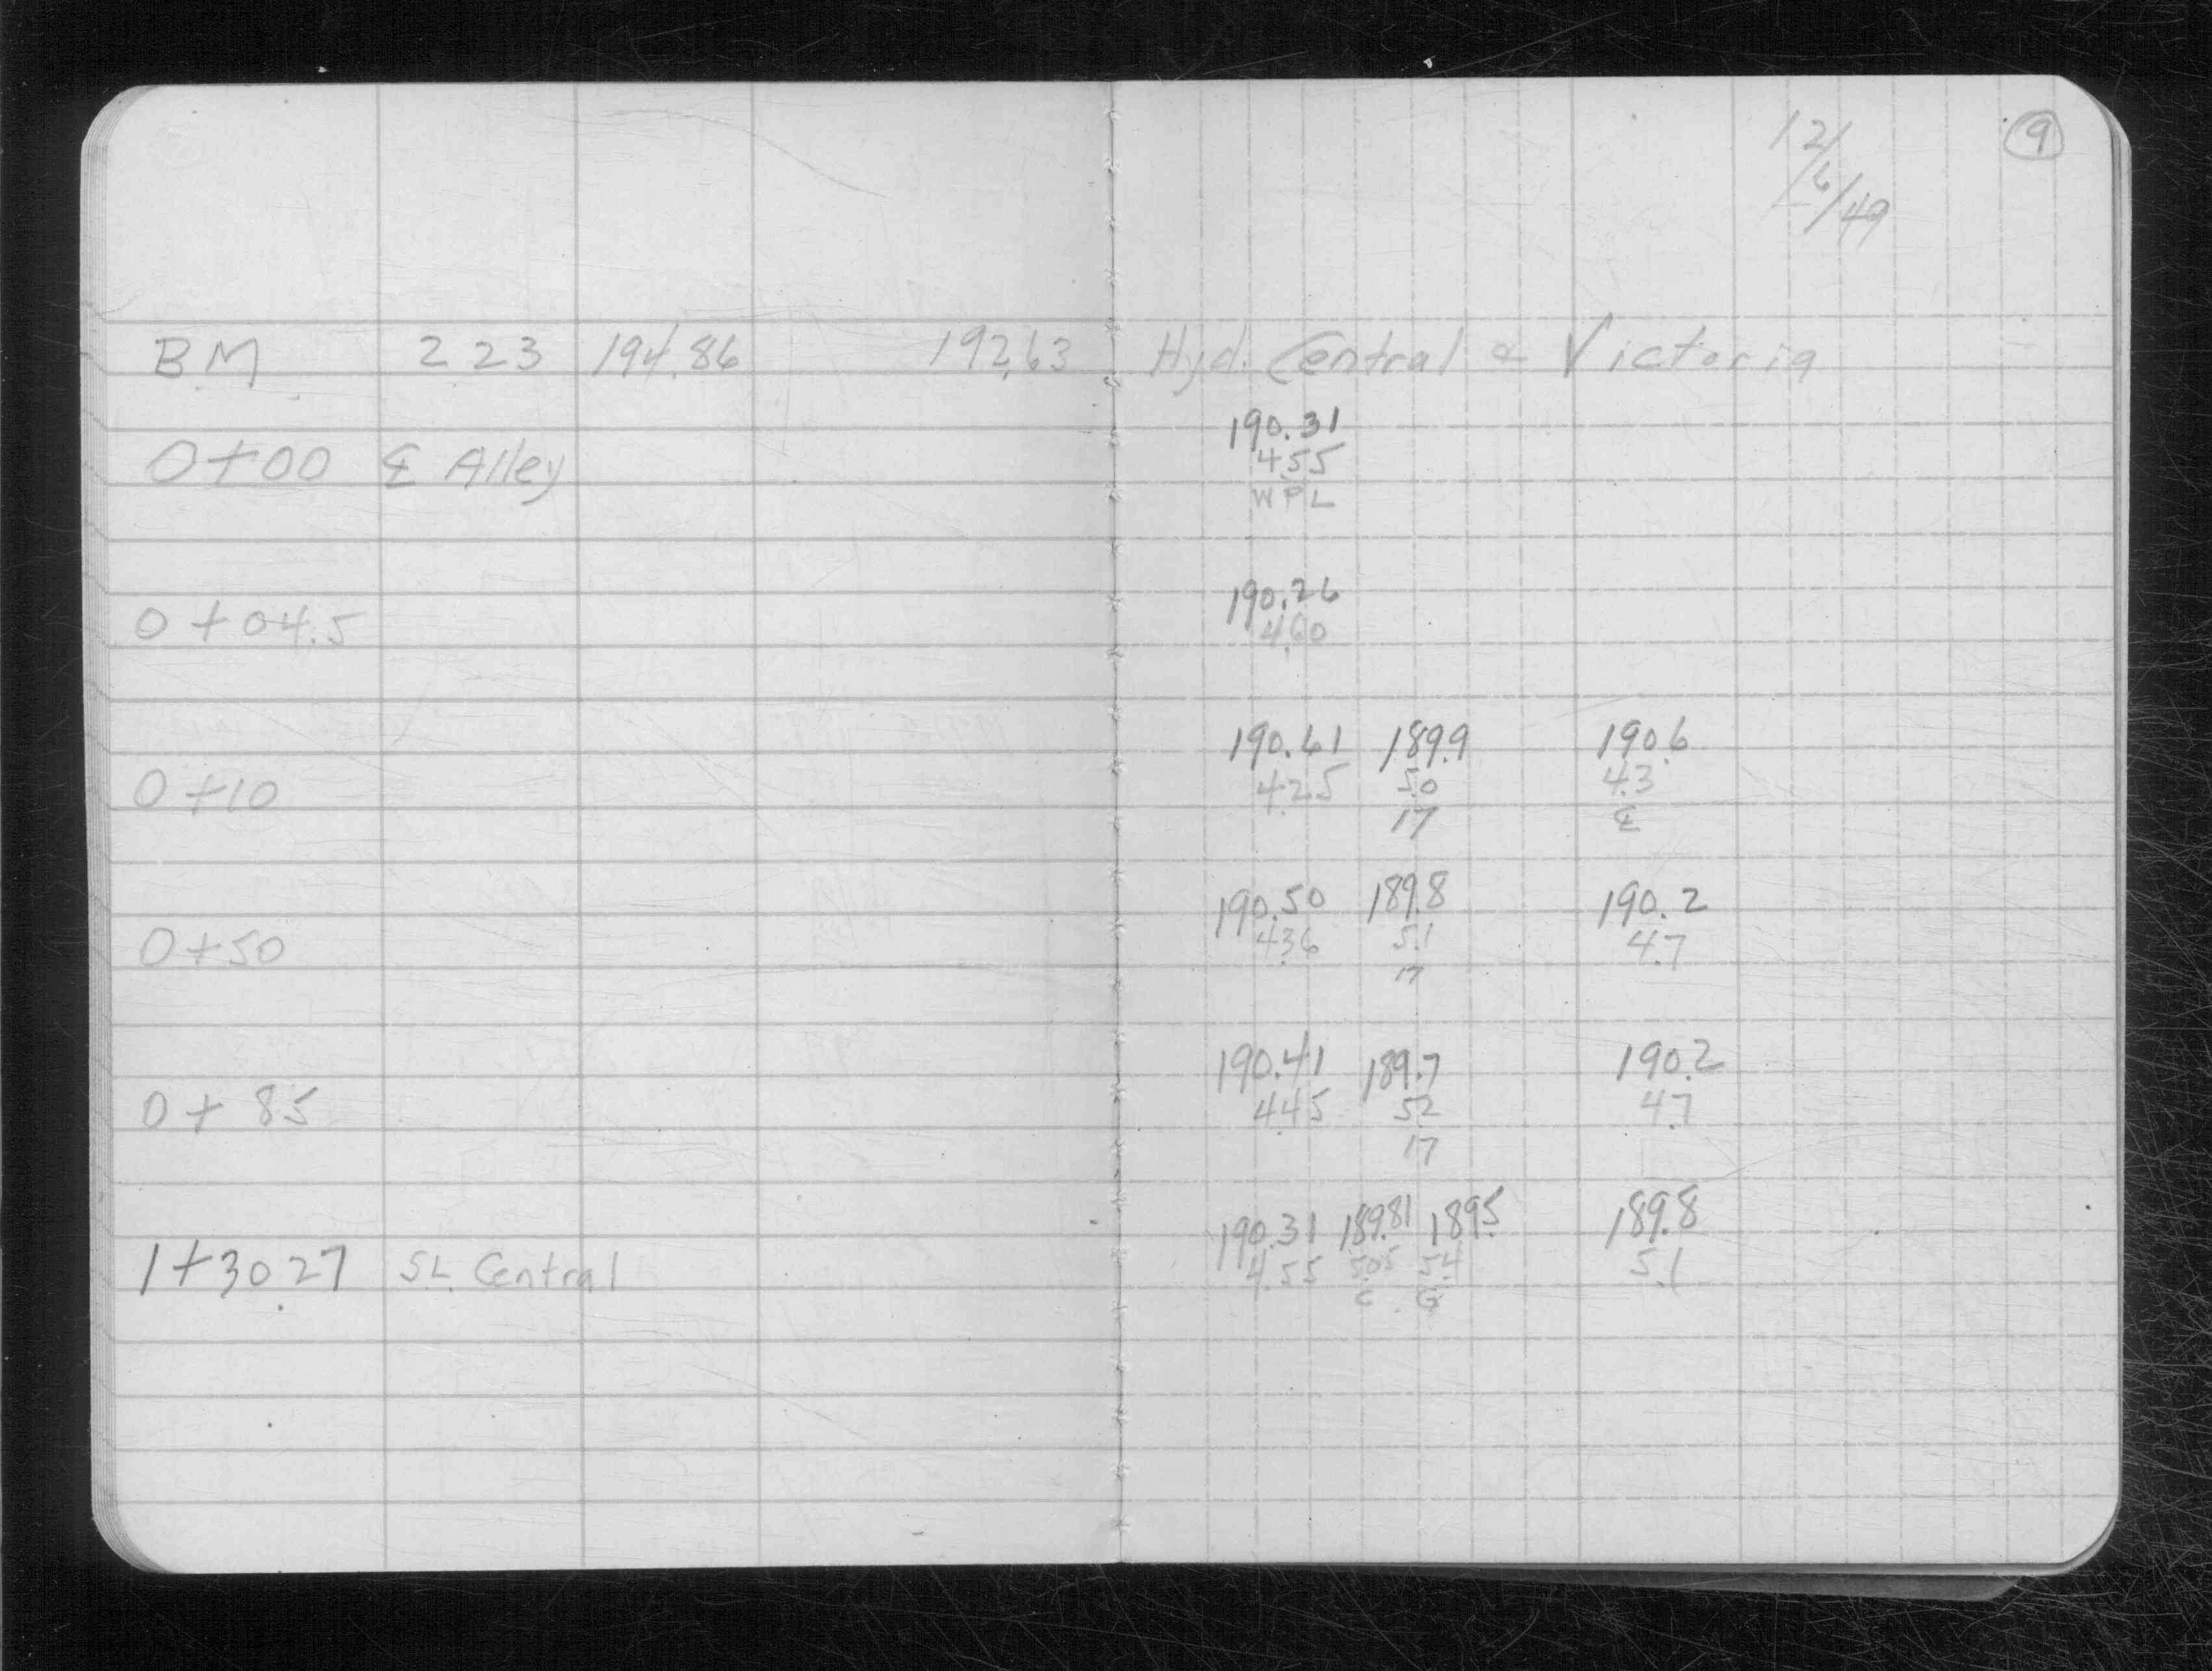 9
12/6/49
B.M. 2.23 194.86 192.63 Hyd. Central & Victoria
190.31
0+00 ℄ Alley 4.55
WPL
190.26
0+04.5 4.60
190.61 189.9 190.6
0+10 4.25 5.0 4.3
17 ℄
190.50 189.8 190.2
0+50 4.36 5.1 4.7
17
190.41 189.7 190.2
0+85 4.45 5.2 4.7
17
190.31 189.81 189.5 189.8
1+30.27 S.L. Central 4.55 5.05 5.4 5.1
C G